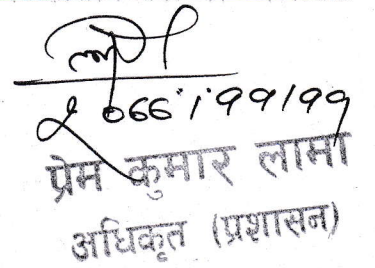 २०७७।११।११
प्रेम कुमार लामा
अधिकृत (प्रशासन)